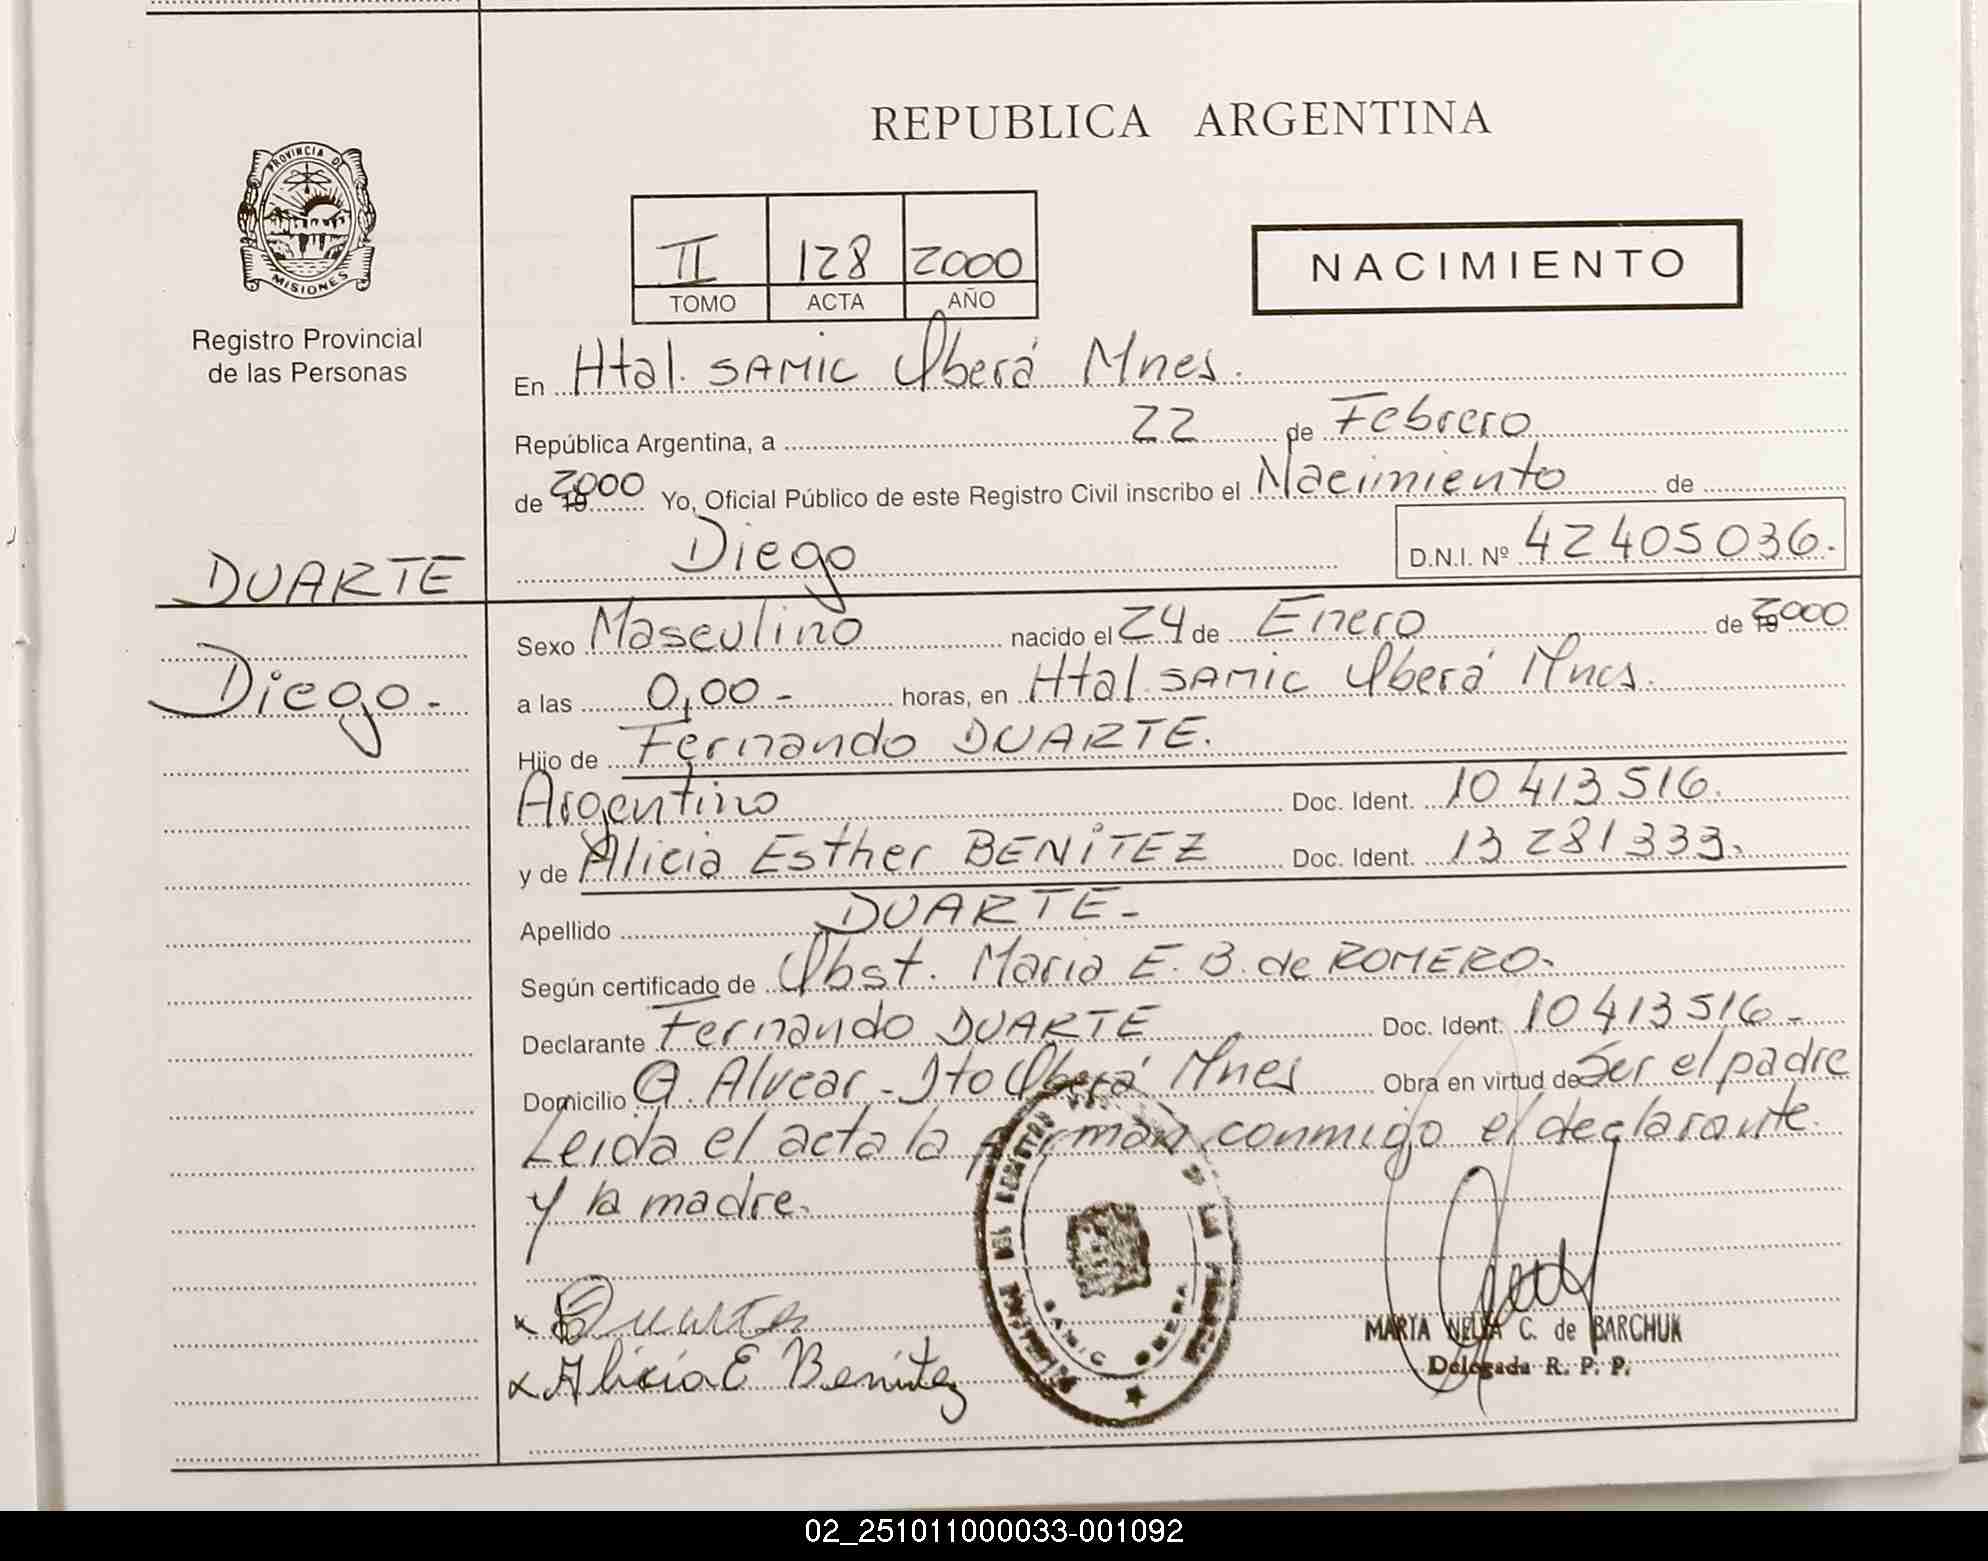 REPUBLICA ARGENTINA
PROVINCIA DE
MISIONES
Registro Provincial
de las Personas
II 128 2000
TOMO ACTA AÑO
NACIMIENTO
En Htal. SAMIC Oberá Mnes.
República Argentina, a 22 de Febrero
de 2000 Yo, Oficial Público de este Registro Civil inscribo el Nacimiento de
Diego D.N.I. Nº 42405036.
DUARTE
Diego.-
Sexo Masculino nacido el 24 de Enero de 2000
a las 0,00- horas, en Htal. SAMIC Oberá Mnes.
Hijo de Fernando DUARTE.
Argentino Doc. Ident. 10 413 516.
y de Alicia Esther BENITEZ Doc. Ident. 13 281 333.
Apellido DUARTE-
Según certificado de Obst. Maria E. B. de ROMERO-
Declarante Fernando DUARTE Doc. Ident. 10 413 516-
Domicilio Alvear - Oberá Mnes Obra en virtud de Ser el padre
Leida el acta la firman conmigo el declarante
y la madre.
x Duarte
x Alicia E Benitez
SAMIC OBERA
MARIA NELIA C. de BARCHUK
Delegada R. P. P.
02_251011000033-001092